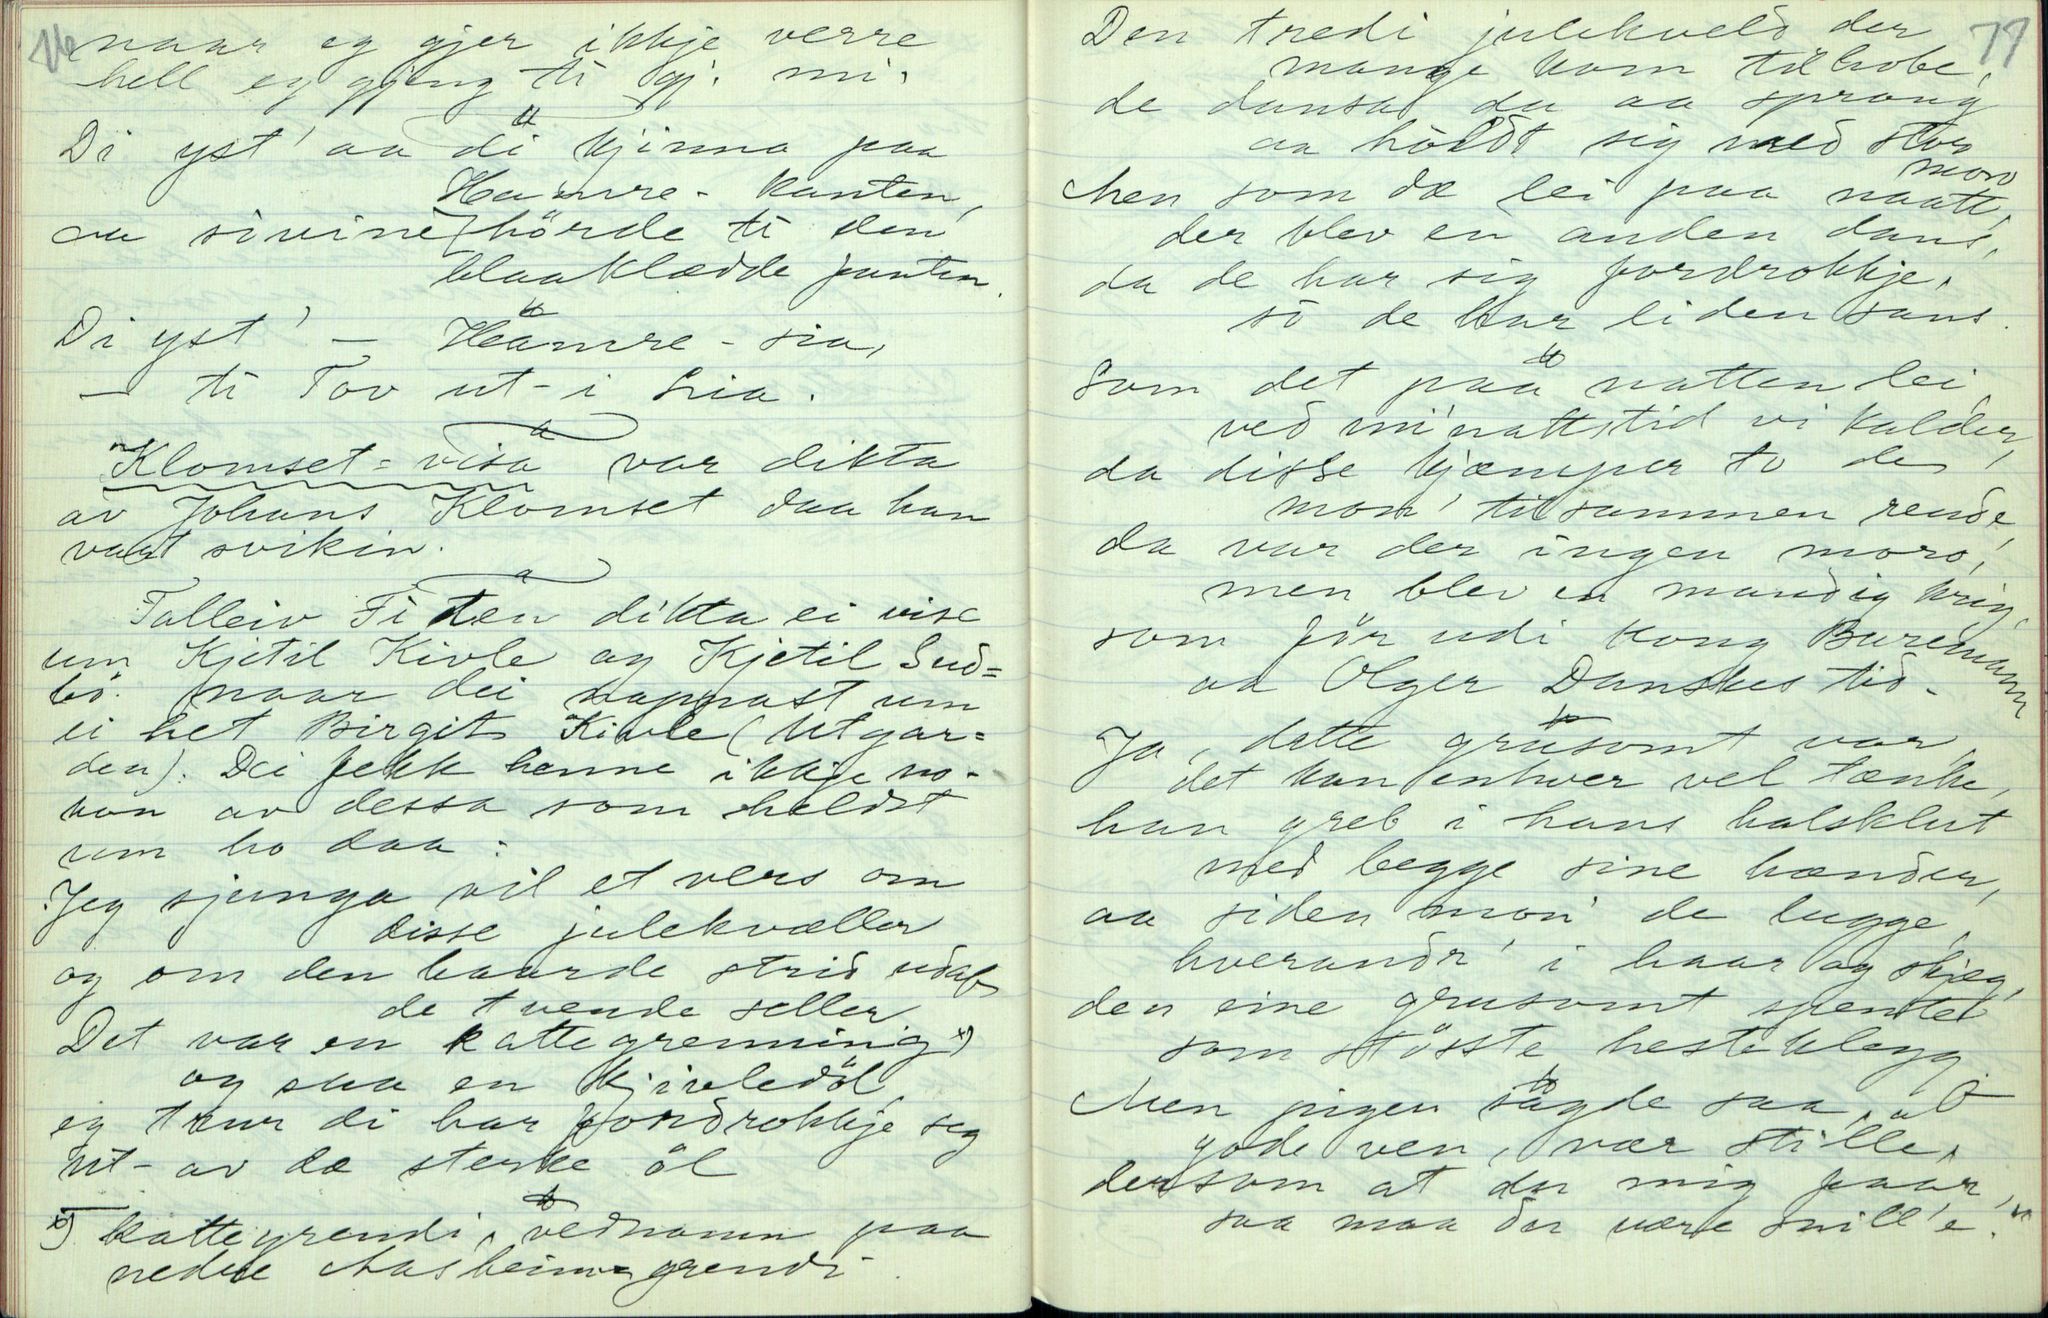 76
naar eg gjer ikkje verre
hell eg gjeng ti gj. mi.
Di yst' aa di kjinna paa
Hamre-kanten,
aa sivine hörde ti den
blaaklædde fanten.
Di yst' — Hamre-sia,
— ti Tov ut-i Lia.
"Klomset-visa" var dikta
av Johans Klomset daa han
vart svikin.
Talleiv Fiten dikta ei vise
um Kjetil Kivle og Kjetil Sud=
bö. naar dei nappast um
ei het Birgit Kivle (Utgar=
den). Dei fekk henne ikkje no-
kon av dessa som heldst
um ho daa:
Jeg sjunga vil et vers om
disse julekvæller
og om den haarde strid udaf
de tvende seller
Det var en kattegrenning x)
og saa en kjivledöl
eg trur di har fordrokkje seg
ut-av dæ sterke öl
x) kattegrendi, vednamn paa
nedre Aasheims grendi.
77
Den tredi julekveld der
mange kom tilhobe,
de dansa da aa sprang
aa holdt sig med stor
moro
Men som dæ lei paa naatti,
der blev en anden dans,
da de har sig fordrokkje,
så de har liden sans.
Som det paa natten lei,
ved mi'nattstid vi kalder,
da disse kjæmper to de
mon' tilsammen rende,
da var der ingen moro,
men blev en mandig krig,
som för udi kong Buremann
aa Olger Danskes tid.
Ja, dette grusomt var,
det kan enhver vel tænke,
han greb i hans halsklut
med begge sine hænder,
aa siden mon' de lugge
hverandr' i haar og skjeg,
den eine grusomt spentet
som störste hesteklegg
Men pigen sagde saa, "å
gode ven, vær stille,
dersom at du mig faar,
saa maa du være snill'e."